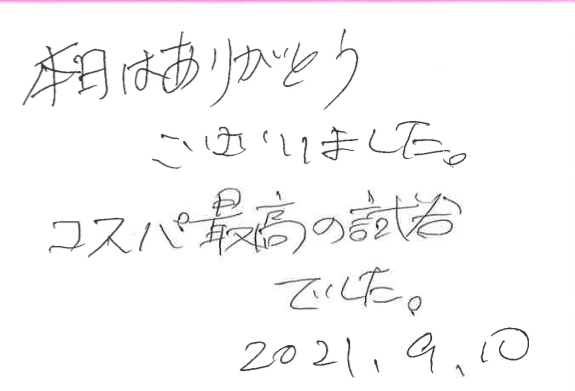 本日はありがとう
ございました。
コスパ最高の試合
でした。
2021.9.10